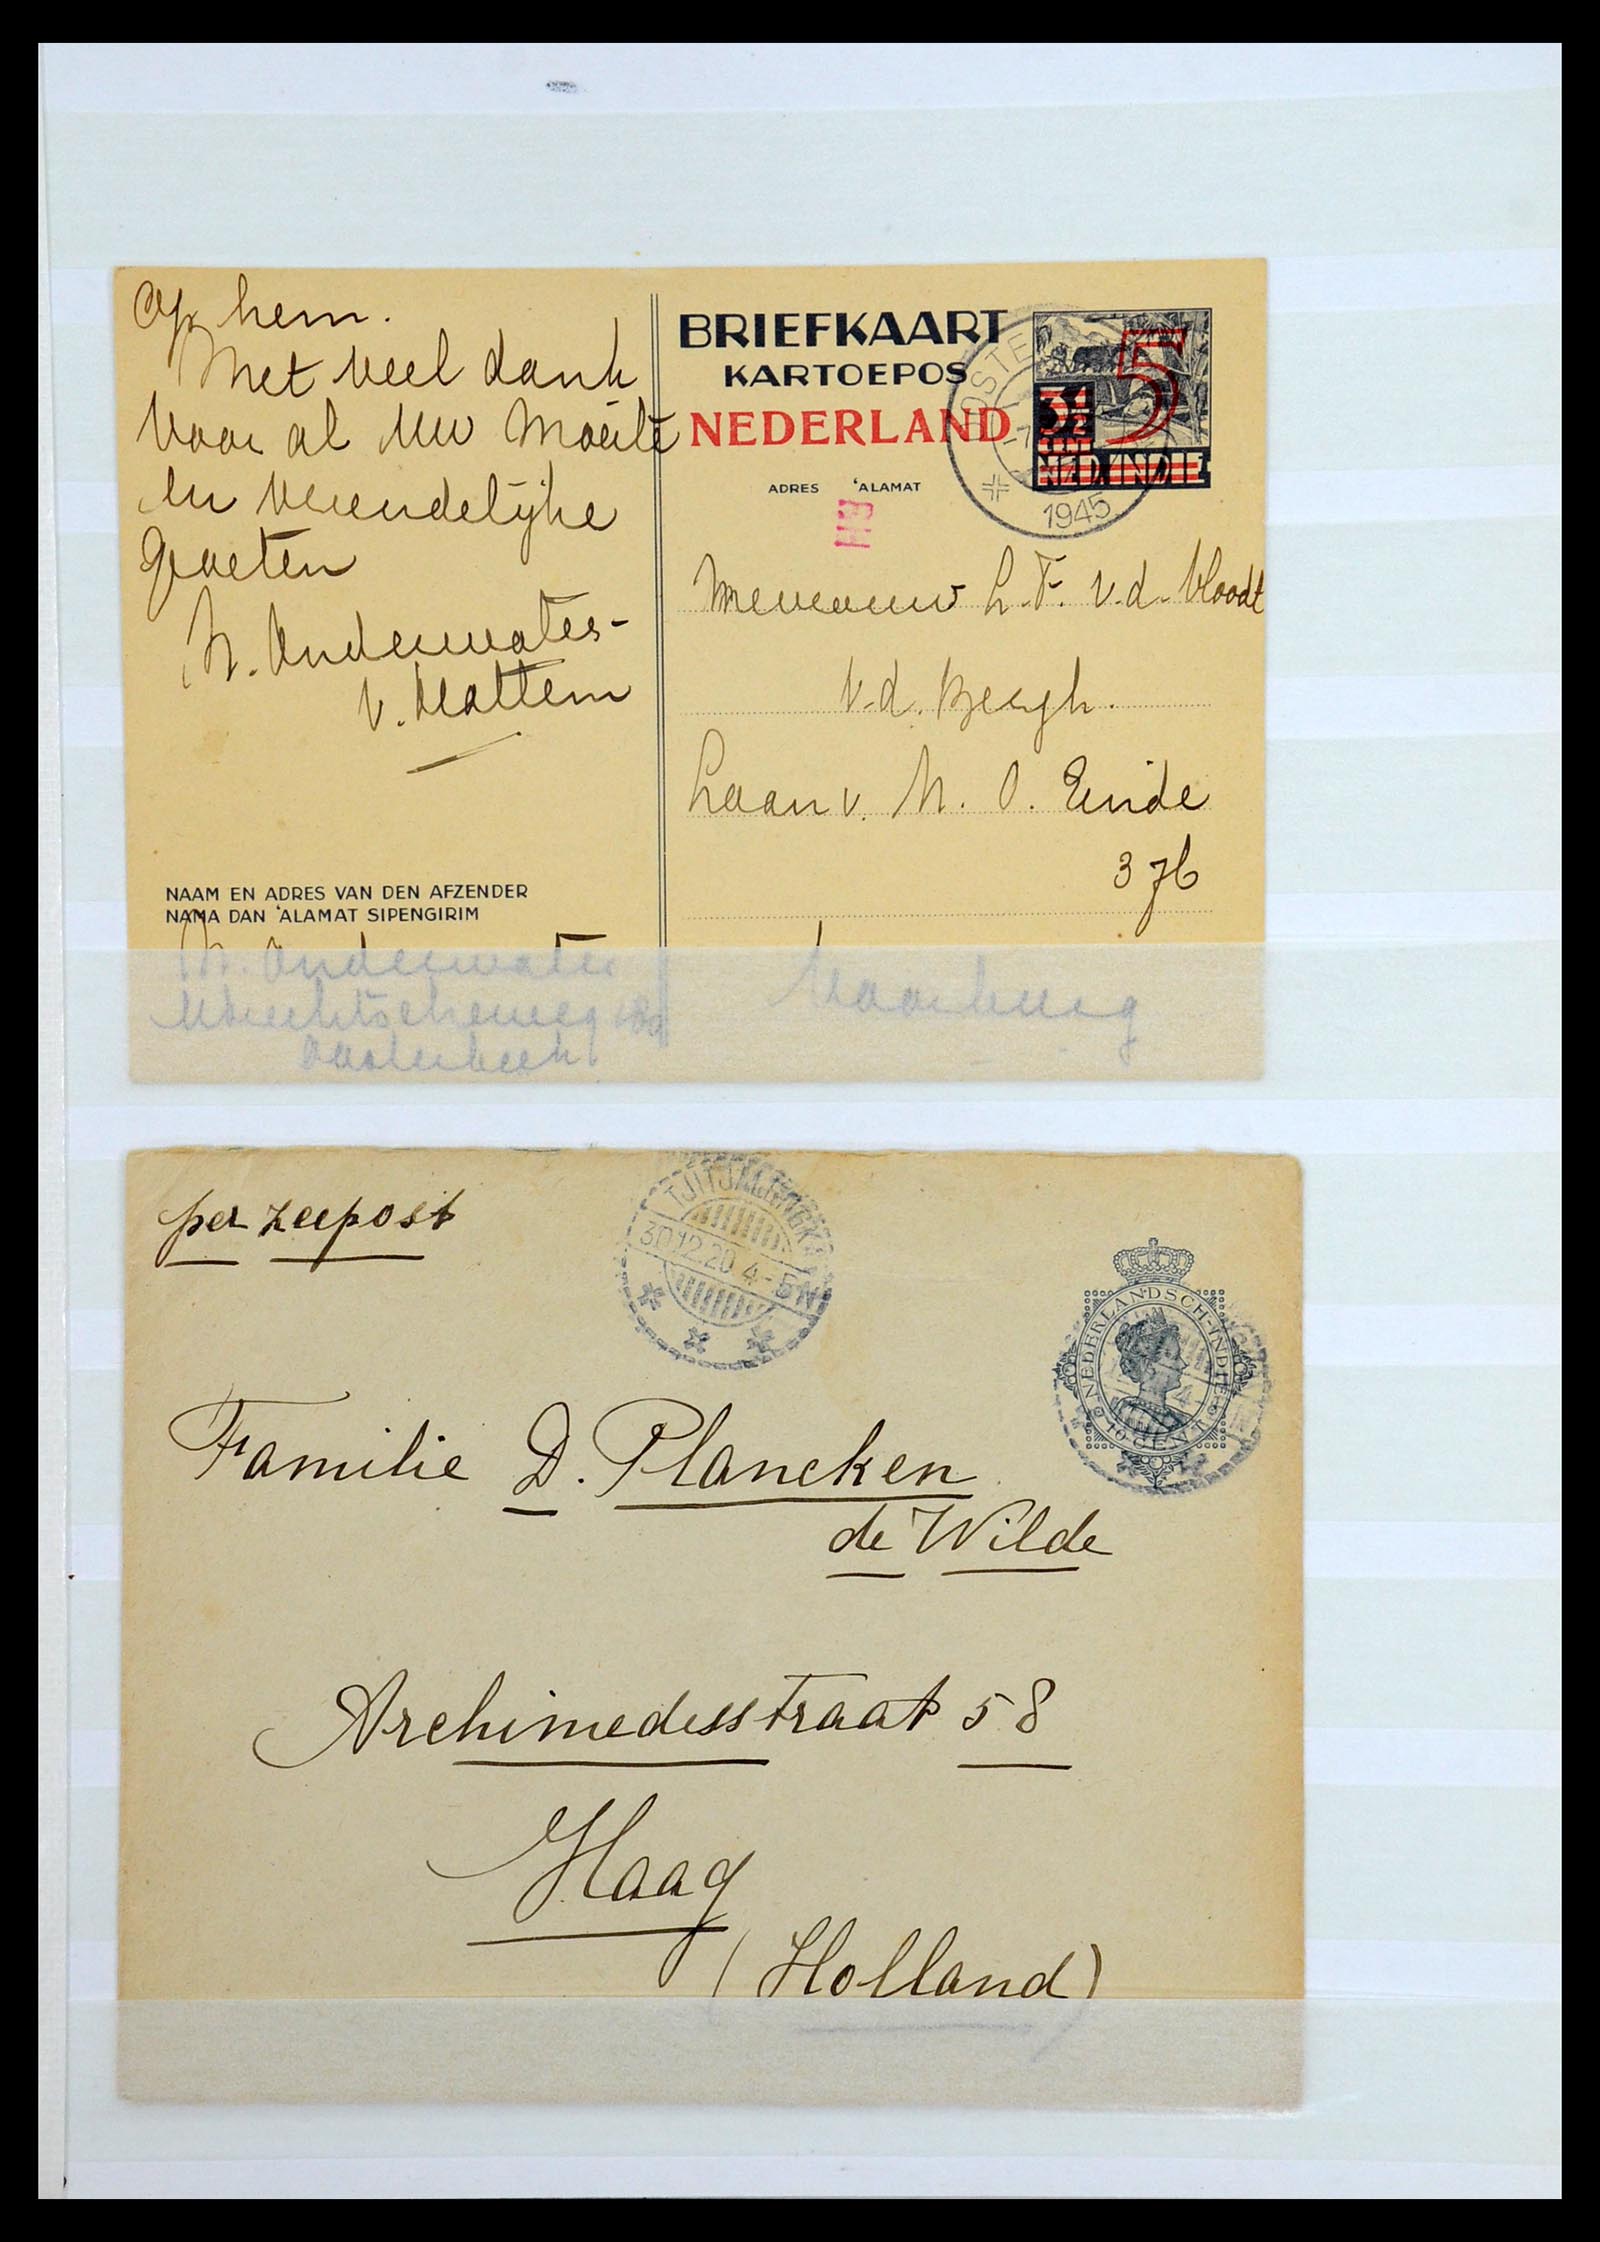 op hem.
Met veel dank
voor al Uw moeite
en vriendelijke
groeten
N. Onderwater-
v. Hattem
NAAM EN ADRES VAN DEN AFZENDER
NAMA DAN 'ALAMAT SIPENGIRIM
N. Onderwater
Utrechtscheweg
Oosterbeek
BRIEFKAART
KARTOEPOS
NEDERLAND
ADRES 'ALAMAT
H3
OOSTE
1945
5
3½
CENT
NED. INDIE
Mevrouw L. F. v.d. Vloodt
v.d. Bergh.
Laan v. N. O. Einde
376
Voorburg
per zeepost
TJITJALENGKA
30.12.20 4-5N
NEDERLANDSCH-INDIE
10 CENT
Familie D. Plancken
de Wilde
Archimedesstraat 58
Haag
(Holland)